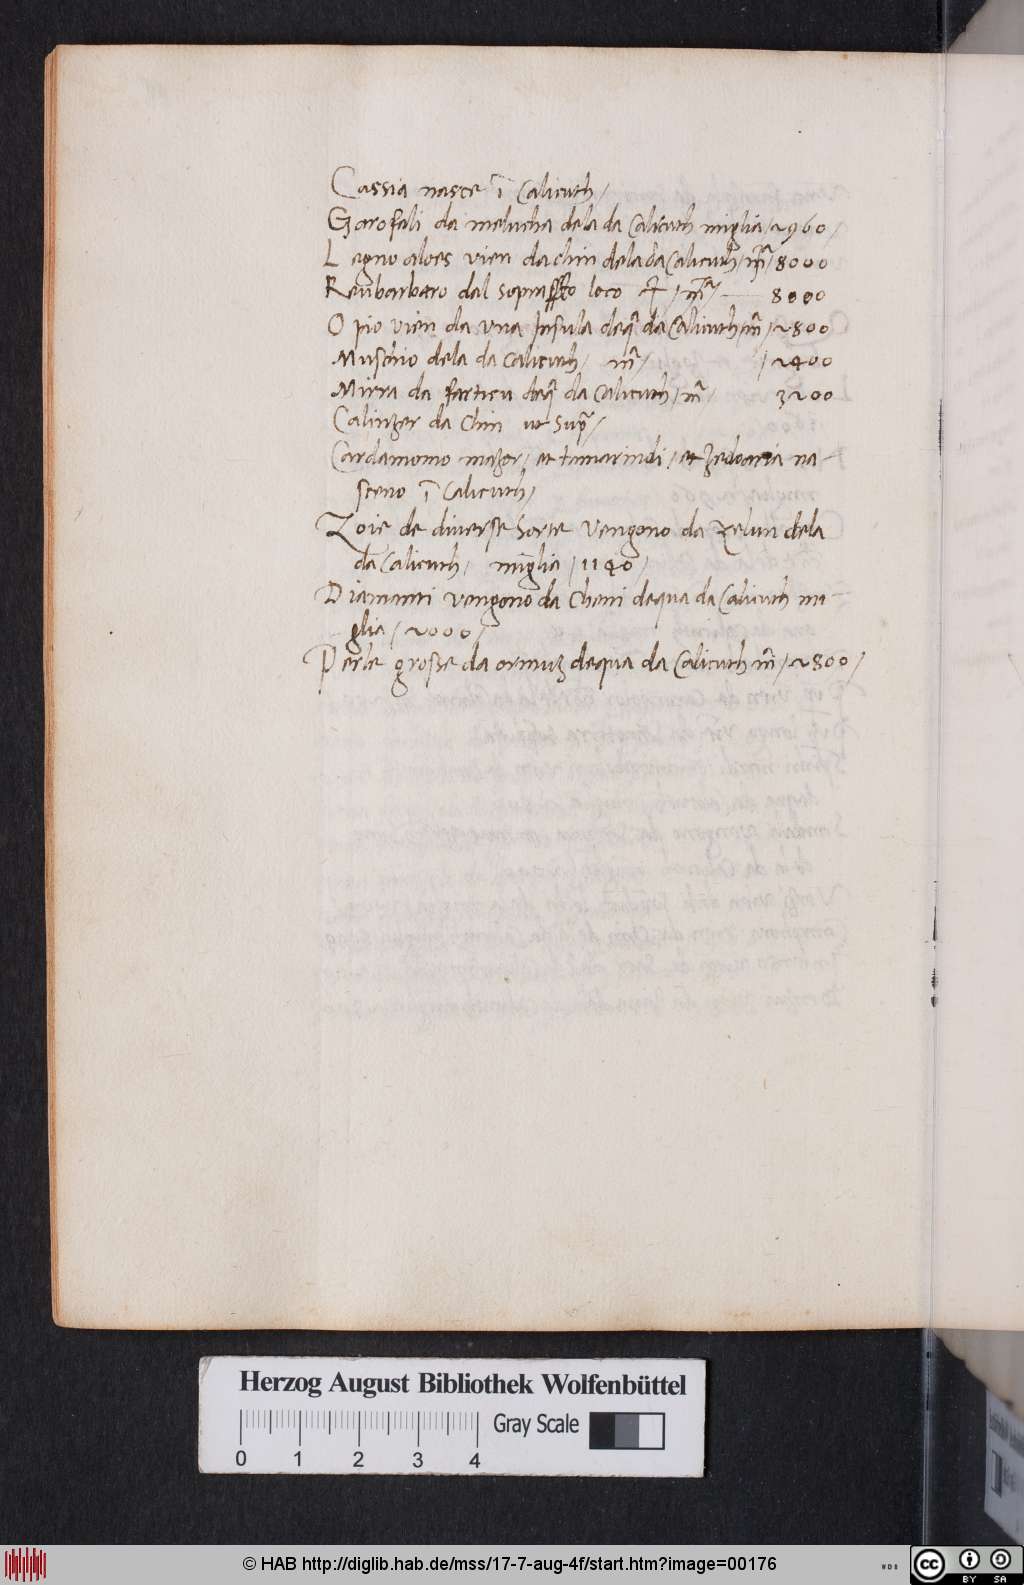 Cassia nasce ī Calicuth/
Garofali da melucha dela da Calicuth miglia/2960/
Legno aloes vien da chin dela da Calicuth/mª/8000
Reubarbaro dal sopra loco /mª/ — 8000
Opio vien da vna Insula deqª da Calicuth/mª/2800
Muschio dela da Calicuth/ mª/ /2400
Mirra da deqª da Calicuth/mª/ 3200
Calinzer da Chin ut supª/
Cardamomo mazor/et tamarindi/et zedoaria na-
sceno ī Calicuth/
Zoie de diuerse Sorte Vengono da zelun dela
da Calicuth/ miglia/1140/
Diamanti vengono da Cheni dequa da Calicuth mi-
glia/2000/
Perle große da ormuz dequa da Calicuth mª/2800/
Herzog August Bibliothek Wolfenbüttel
Gray Scale
0 1 2 3 4
© HAB http://diglib.hab.de/mss/17-7-aug-4f/start.htm?image=00176
WDB
cc BY SA